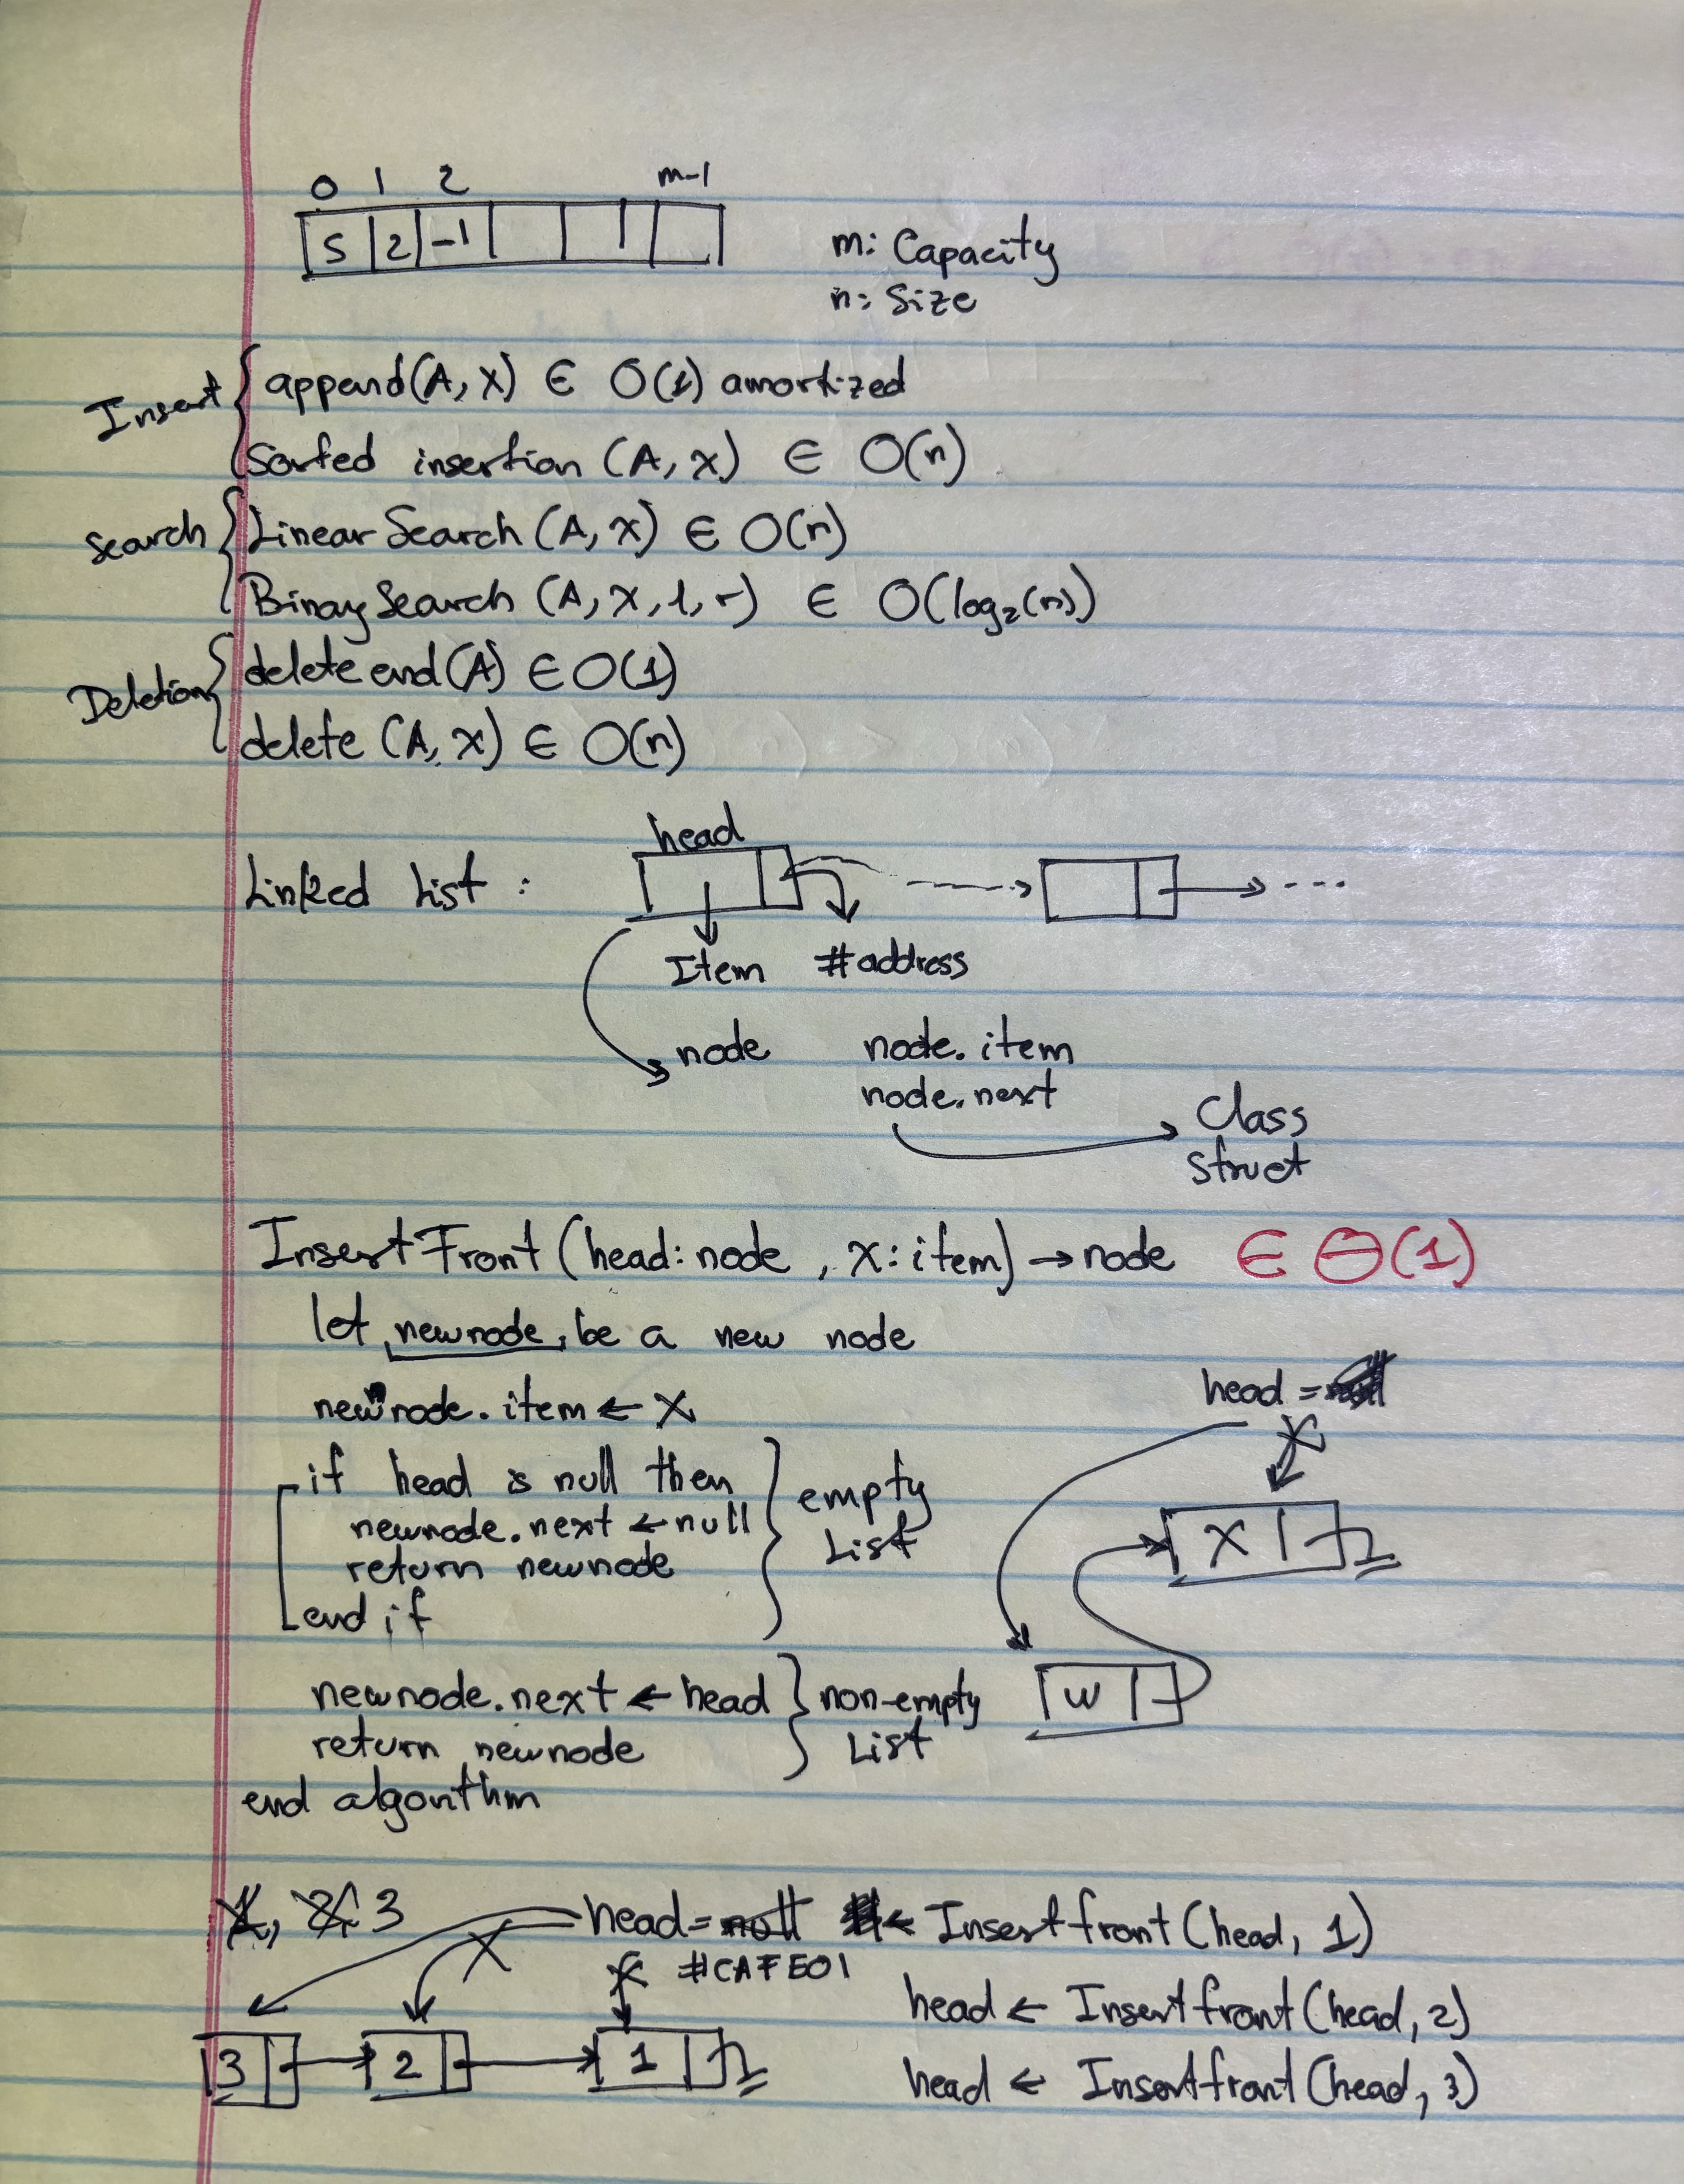 0 1 2 m-1
5 2 -1
m: Capacity
n: Size
Insert
append(A, X) ∈ O(1) amortized
Sorted insertion (A, x) ∈ O(n)
Search
Linear Search (A, x) ∈ O(n)
Binary Search (A, x, l, r) ∈ O(log₂(n))
Deletion
delete end(A) ∈ O(1)
delete (A, x) ∈ O(n)
head
Linked List :
Item #address
node node.item
node.next
Class
Struct
Insert Front (head: node , x: item) → node ∈ Θ(1)
let newnode be a new node
newnode.item ← x
head =
if head is null then
newnode.next ← null
return newnode
end if
empty
List
X
newnode.next ← head
return newnode
non-empty
List
W
end algorithm
1, 2, 3
head = null ← Insertfront (head, 1)
#CAFE01
head ← Insertfront (head, 2)
3 2 1
head ← Insertfront (head, 3)